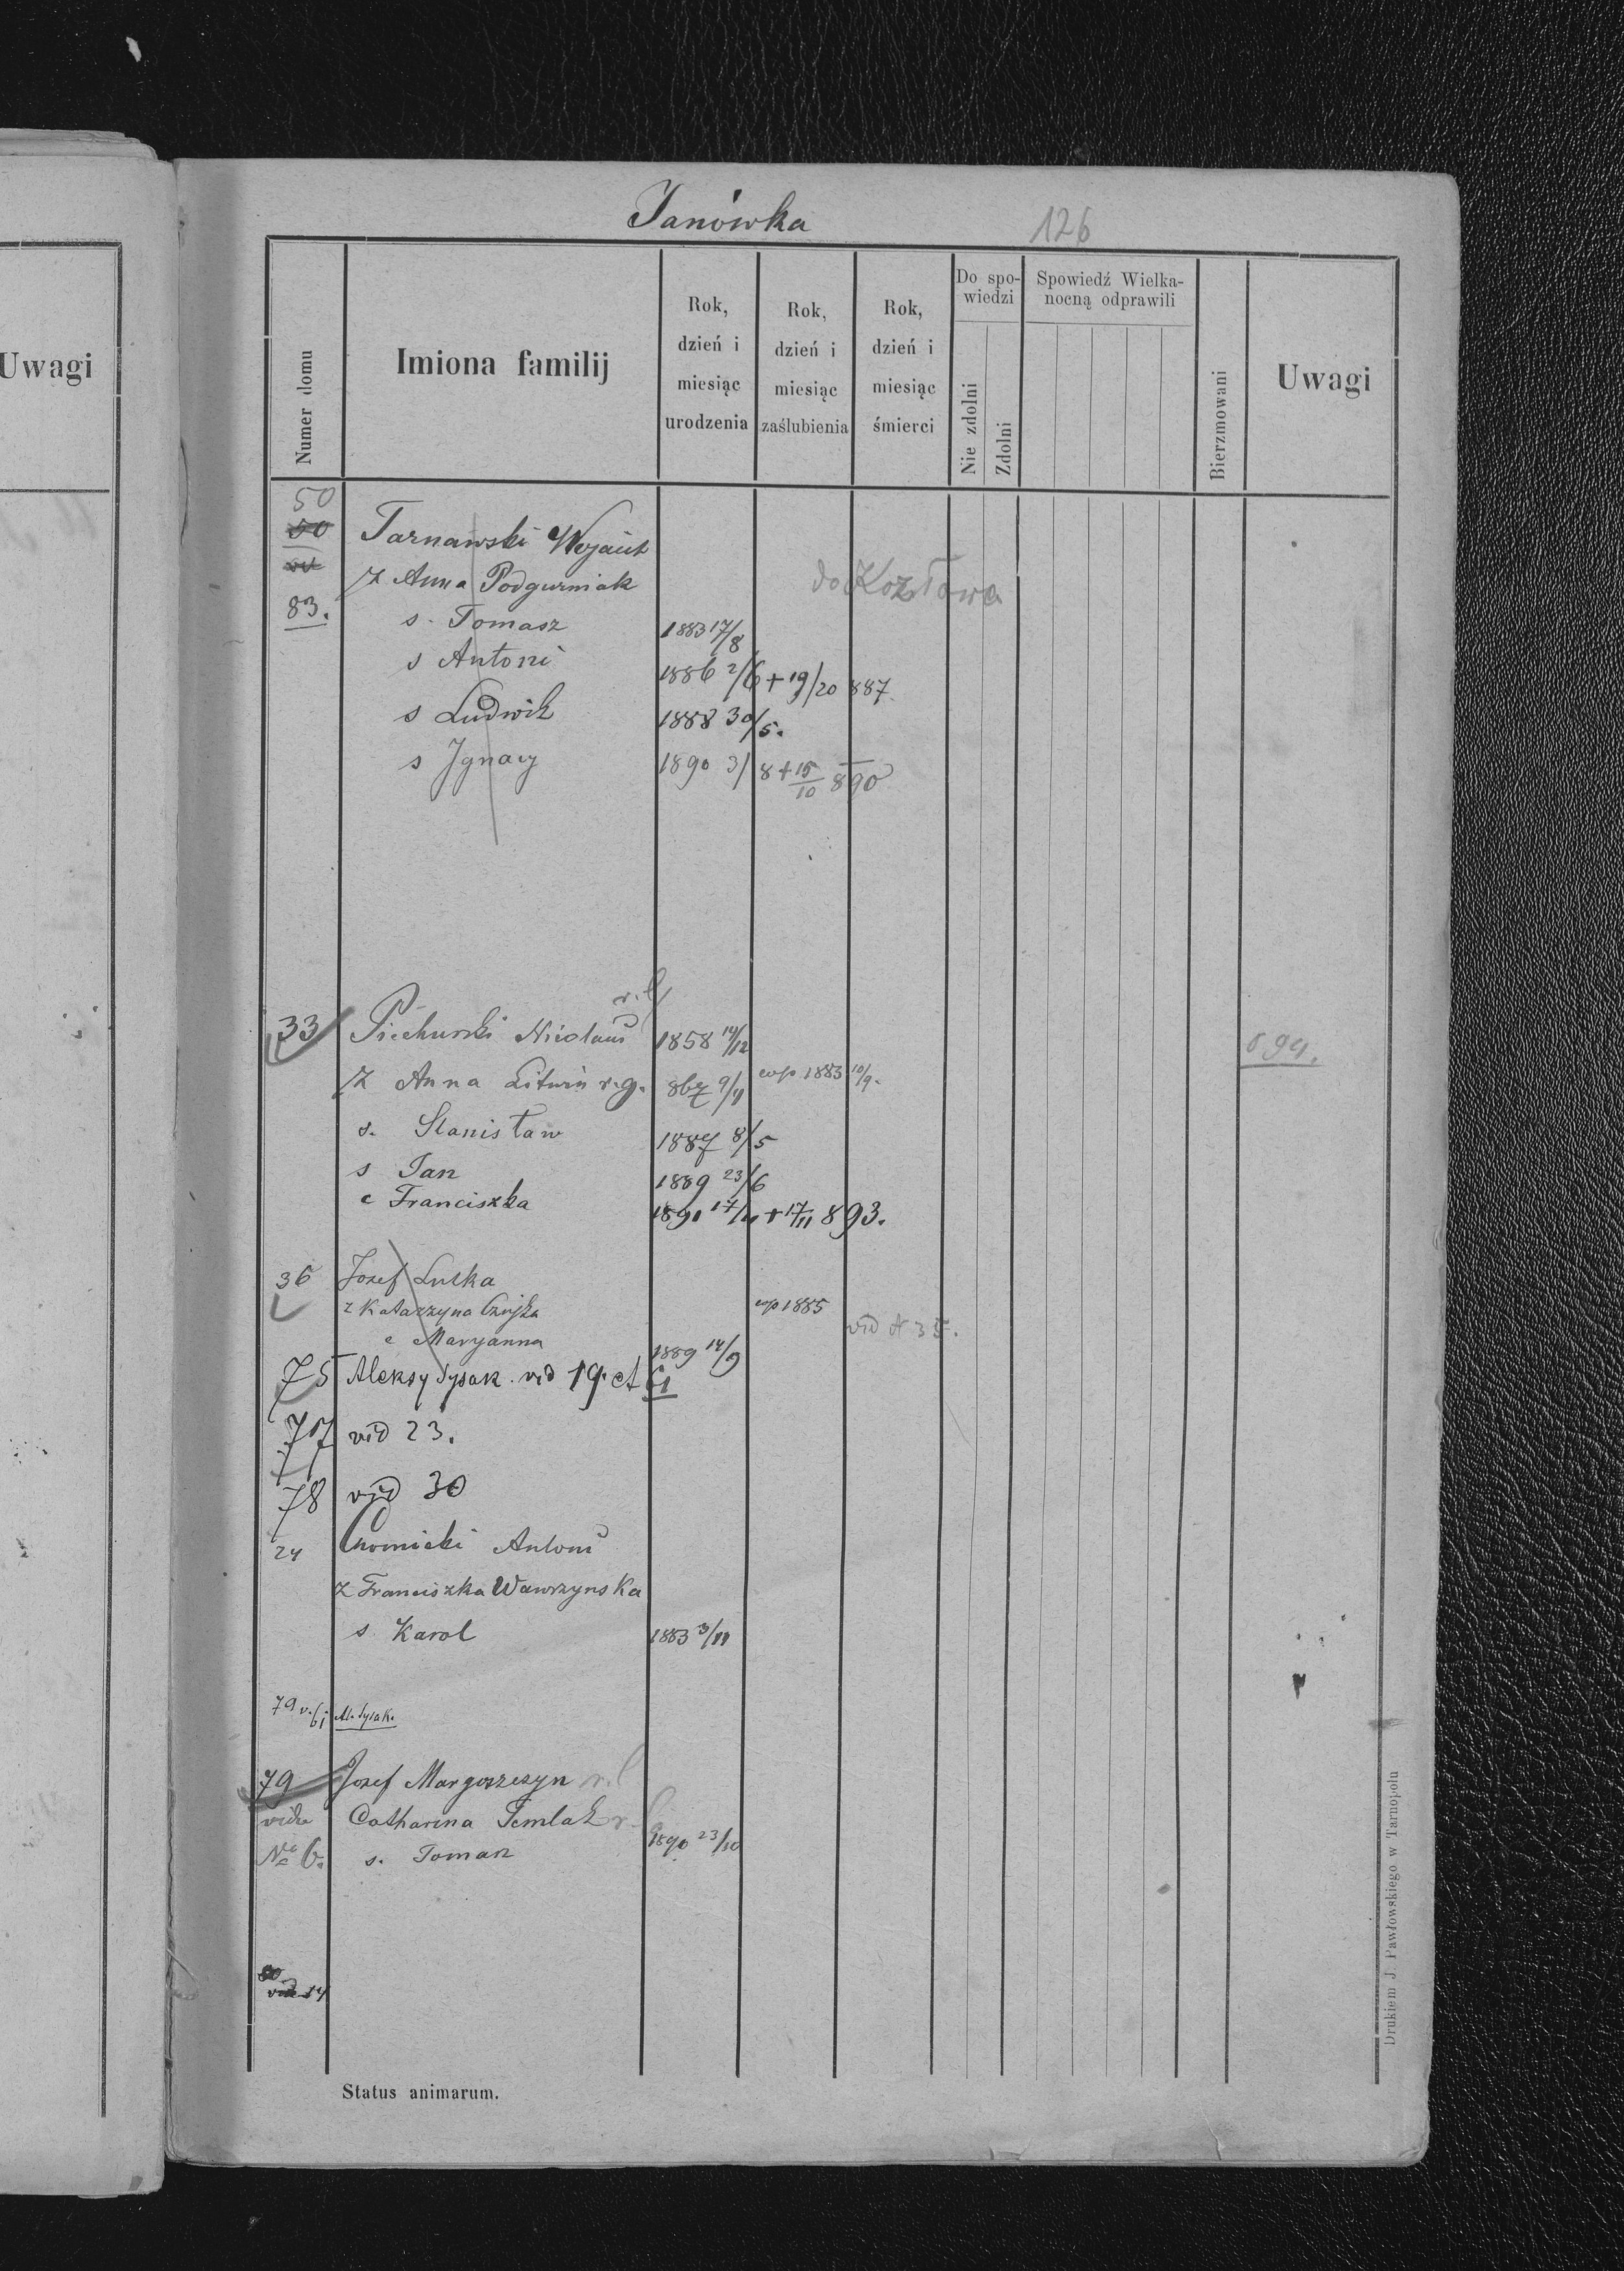 Uwagi
Janówka
126
Numer domu
Imiona familij
Rok, dzień i miesiąc urodzenia
Rok, dzień i miesiąc zaślubienia
Rok, dzień i miesiąc śmierci
Do spowiedzi
Nie zdolni
Zdolni
Spowiedź Wielkanocną odprawili
Bierzmowani
Uwagi
50
50
83.
Tarnawski Wojciech
Ż Anna Podgurniak
do Kozłowa
s. Tomasz 1883 17/8
s Antoni 1886 2/6 + 19/20 887
s Ludwik 1888 30/5.
s Ignacy 1890 3/8 + 15/10 890
33 Piechurski Nicolaus 1858 14/12
894.
Ż Anna Litwin r.g. 867 9/11 cop 1883 10/9.
s. Stanisław 1887 8/5
s Jan 1889 23/6
c Franciszka 1891 17/11 + 17/11 893.
36 Jozef Lutka
ż Katarzyna cop 1885
vid N 35.
c Maryanna 1889 14/9
75 Aleksy Tysak vid 19. et 61
77 vid 23.
78 vid 30
24 Chomicki Antoni
Ż Franciszka Wawrzynska
s Karol 1883 3/11
79 v. 61 Al. Tysak.
79 Jozef Margoszczyn r.l
vide Catharina Semlak r.
No 6. s. Tomasz 1890 23/10
80
vide 14
Status animarum.
Drukiem J. Pawłowskiego w Tarnopolu